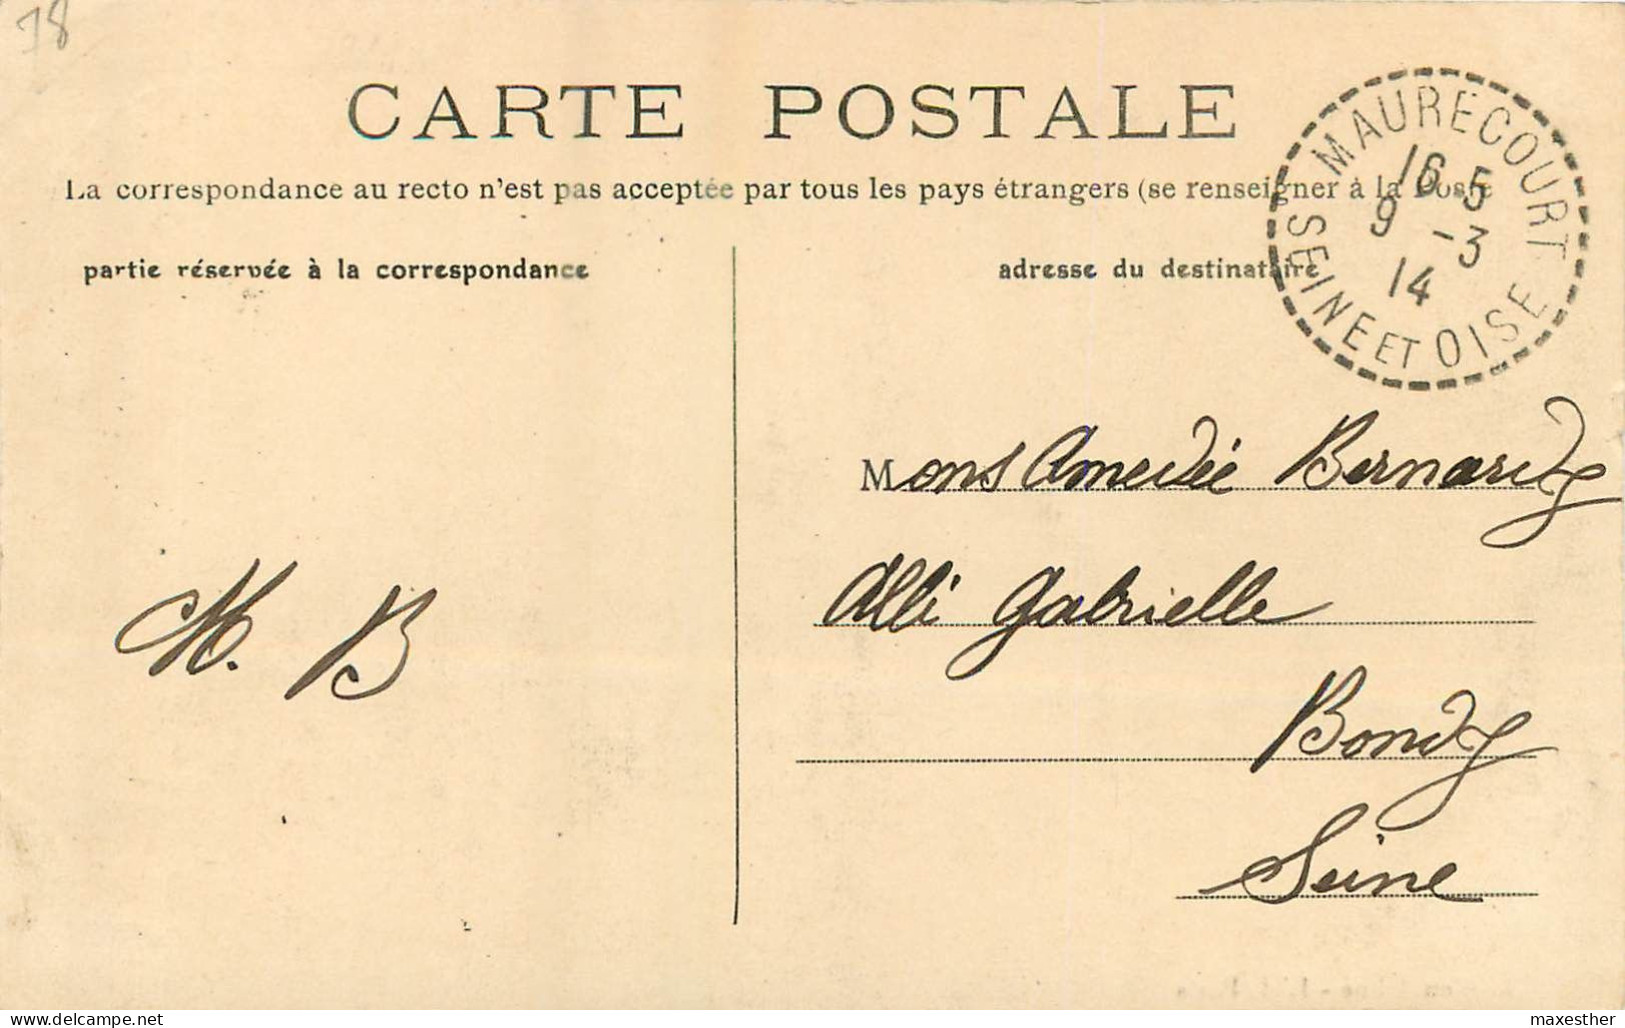 78
CARTE POSTALE
La correspondance au recto n'est pas acceptée par tous les pays étrangers (se renseigner à la Poste
partie réservée à la correspondance
adresse du destinataire
MAURECOURT
16 5
9 -3
14
SEINE ET OISE
Mons Amedée Bernard
Allé Gabrielle
Bondy
Seine
M. B
delcampe.net
maxesther